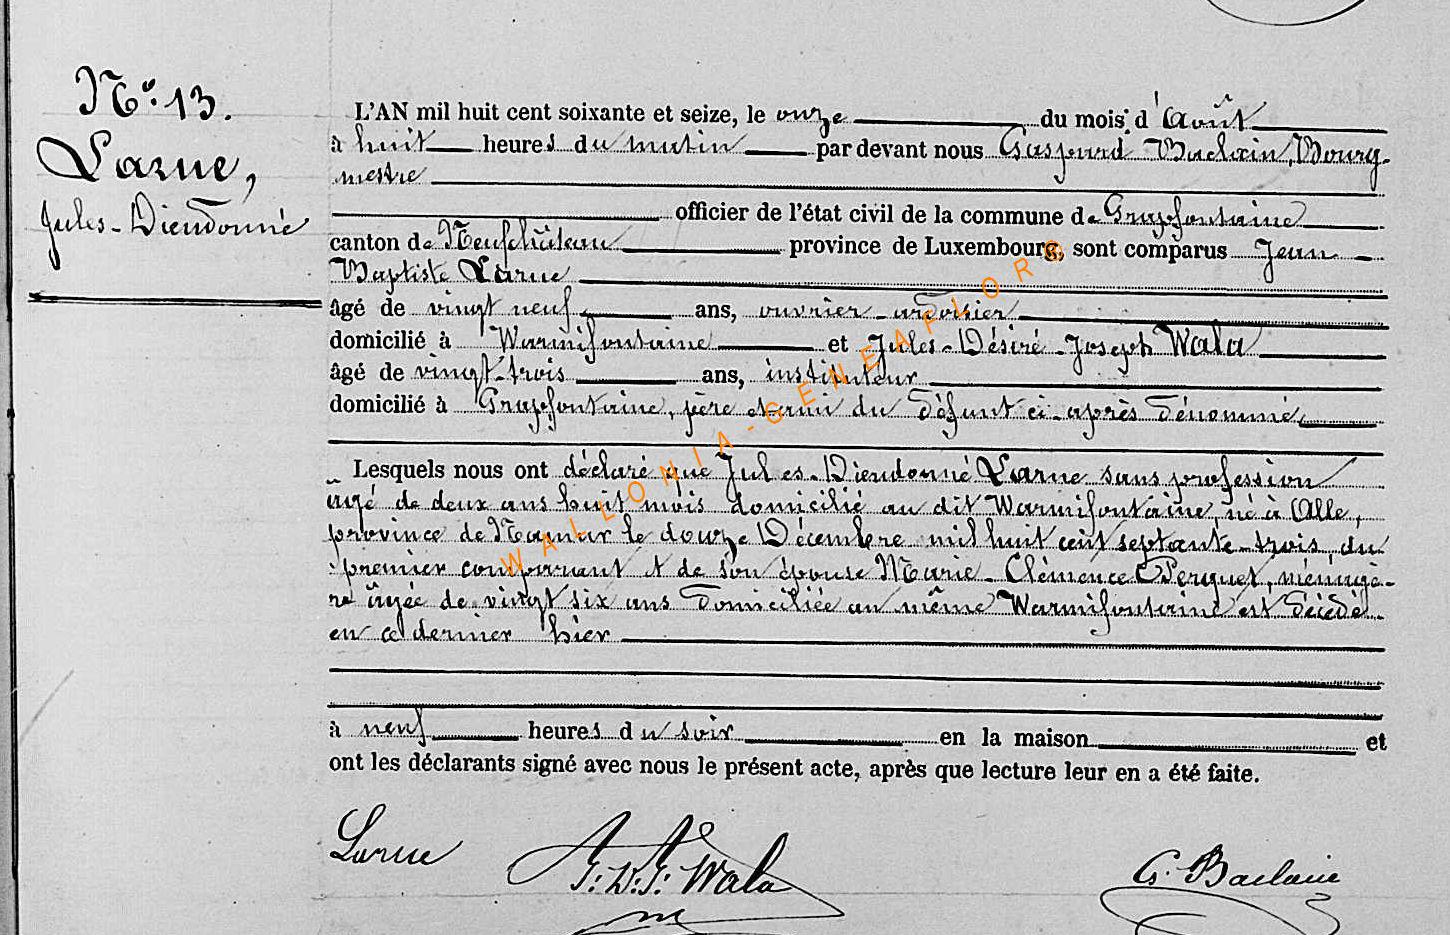 N°. 13.
Larue,
Jules-Dieudonné
L'AN mil huit cent soixante et seize, le onze du mois d'Août
à huit heures du matin par devant nous Gaspard Baclain, Bourg-
mestre
officier de l'état civil de la commune de Grapfontaine
canton de Neufchâteau province de Luxembourg, sont comparus Jean
Baptiste Larue
âgé de vingt neuf ans, ouvrier ardoisier
domicilié à Warmifontaine et Jules-Désiré-Joseph Wala
âgé de vingt-trois ans, instituteur
domicilié à Grapfontaine, père et ami du défunt ci-après dénommé,
Lesquels nous ont déclaré que Jules-Dieudonné Larue sans profession
âgé de deux ans huit mois domicilié au dit Warmifontaine, né à Alle,
province de Namur le douze Décembre mil huit cent septante-trois du
premier comparant et de son épouse Marie-Clémence Perquet, ménagè-
re âgée de vingt six ans domiciliée au même Warmifontaine est décédé
en ce dernier hier
à neuf heures du soir en la maison et
ont les déclarants signé avec nous le présent acte, après que lecture leur en a été faite.
Larue J.D.J. Wala G. Baclain
WALLONIA-GENEAFLORE